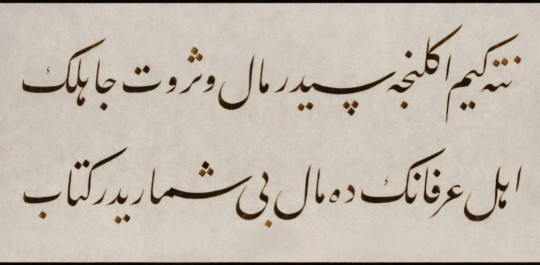 نته كیم اكلنجه سیدر مال و ثروت جاهلك
اهل عرفانك ده مال بی شماریدر كتاب